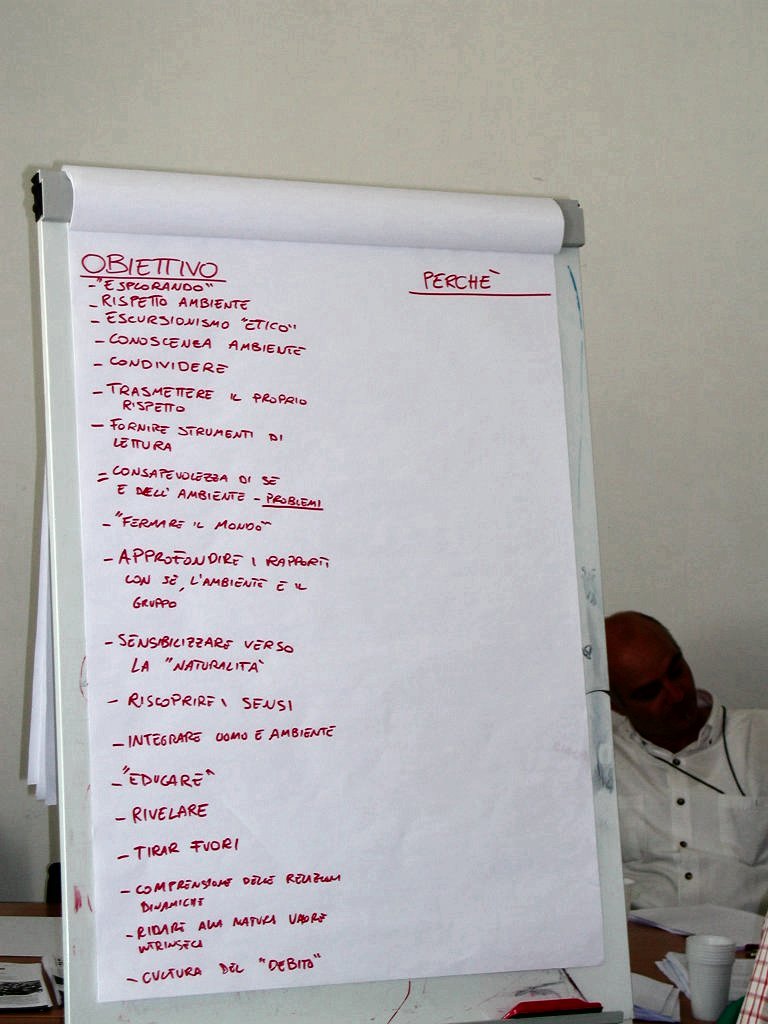 OBIETTIVO
PERCHE'
- "ESPLORANDO"
- RISPETTO AMBIENTE
- ESCURSIONISMO "ETICO"
- CONOSCENZA AMBIENTE
- CONDIVIDERE
- TRASMETTERE IL PROPRIO
RISPETTO
- FORNIRE STRUMENTI DI
LETTURA
= CONSAPEVOLEZZA DI SE
E DELL'AMBIENTE - PROBLEMI
- "FERMARE IL MONDO"
- APPROFONDIRE I RAPPORTI
CON SE', L'AMBIENTE E IL
GRUPPO
- SENSIBILIZZARE VERSO
LA "NATURALITA'
- RISCOPRIRE I SENSI
- INTEGRARE UOMO E AMBIENTE
- "EDUCARE"
- RIVELARE
- TIRAR FUORI
- COMPRENSIONE DELLE RELAZIONI
DINAMICHE
- RIDARE ALLA NATURA VALORE
INTRINSECO
- CULTURA DEL "DEBITO"